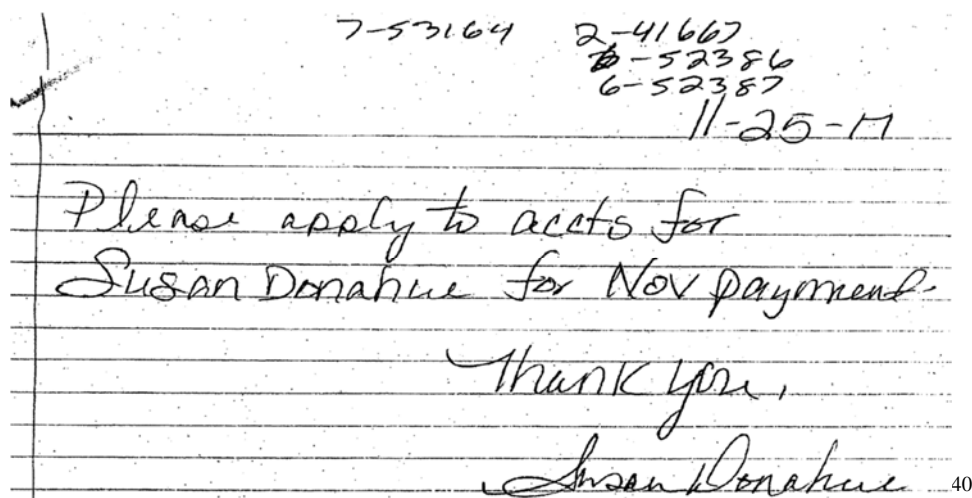 7-53164 2-41667
6-52386
6-52387
11-25-17
Please apply to accts for
Susan Donahue for Nov payment.
Thank you,
Susan Donahue
40